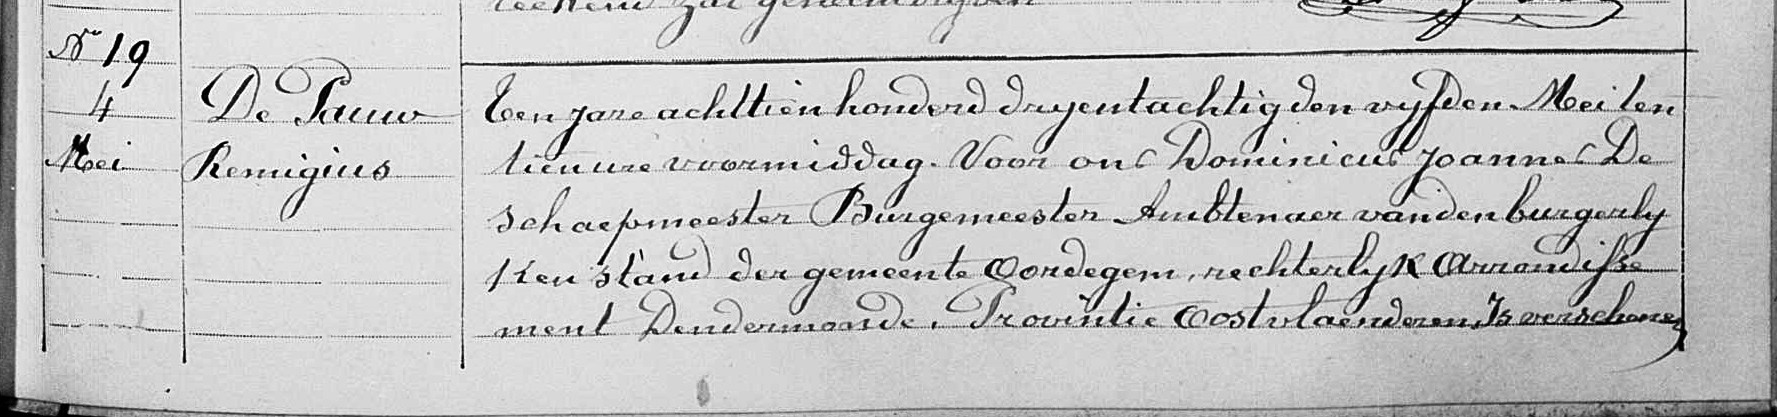 N° 19
4
Mei
De Pauw
Remigius
Ten jare achttien honderd dryentachtig den vyfden Mei ten
tien ure voormiddag. Voor ons Dominicus Joannes De
schaepmeester Burgemeester Ambtenaer van den burgerly
ken stand der gemeente Oordegem, rechterlyk Arrondisse
ment Dendermonde, Provintie Oostvlaenderen, Is verschenen